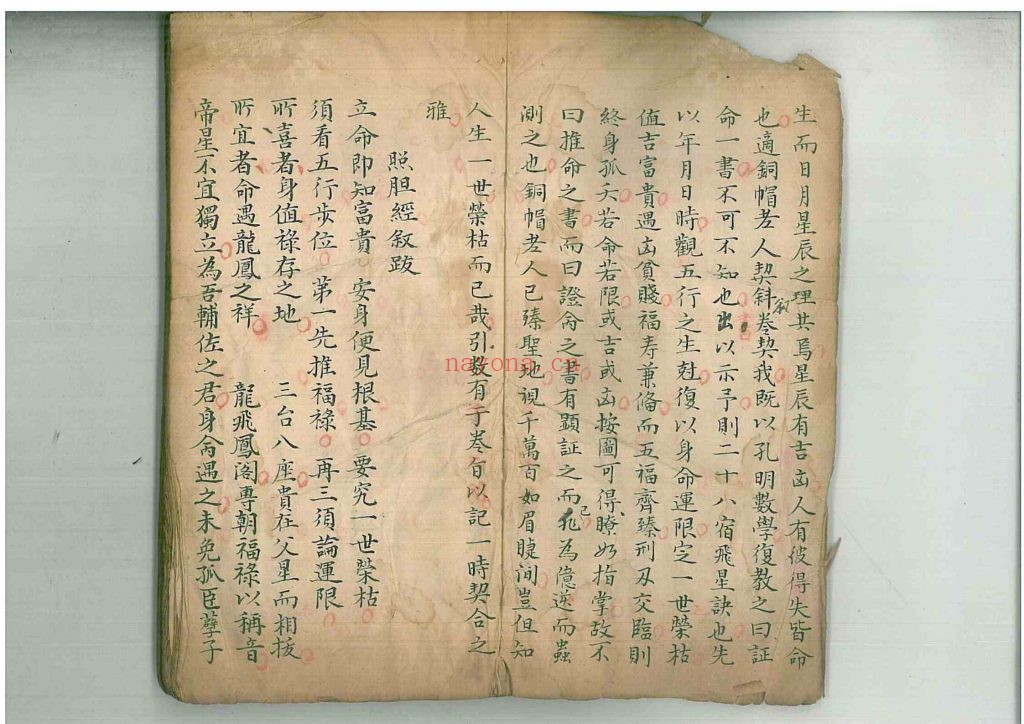 生而日月星辰之理其焉星辰有吉凶人有彼得失皆命
也適銅帽老人契斜叙卷契我既以孔明數學復教之曰証
命一書不可不知也書出以示予則二十八宿飛星訣也先
以年月日時觀五行之生尅復以身命運限定一世榮枯
值吉富貴遇凶貧賤福寿兼俻而五福齊臻刑刃交臨則
終身孤夭若命若限或吉或凶按圖可得瞭如指掌故不
曰推命之書而曰證命之書有顕証之而已非為億逆而蟲
測之也銅帽老人已臻聖地視千萬百如眉睫间豈但知
人生一世榮枯而已哉引数有于卷旨以記一時契合之
雅
照胆經叙跋
立命即知富貴 安身便見根基 要究一世榮枯
須看五行步位 第一先推福禄 再三須論運限
所喜者身值禄存之地 三台八座貴在父星而相援
所宜者命遇龍鳳之祥 龍飛鳳閣專朝福禄以稱音
帝星不宜獨立為吾輔佐之君身命遇之未免孤臣孽子
nayona.cn